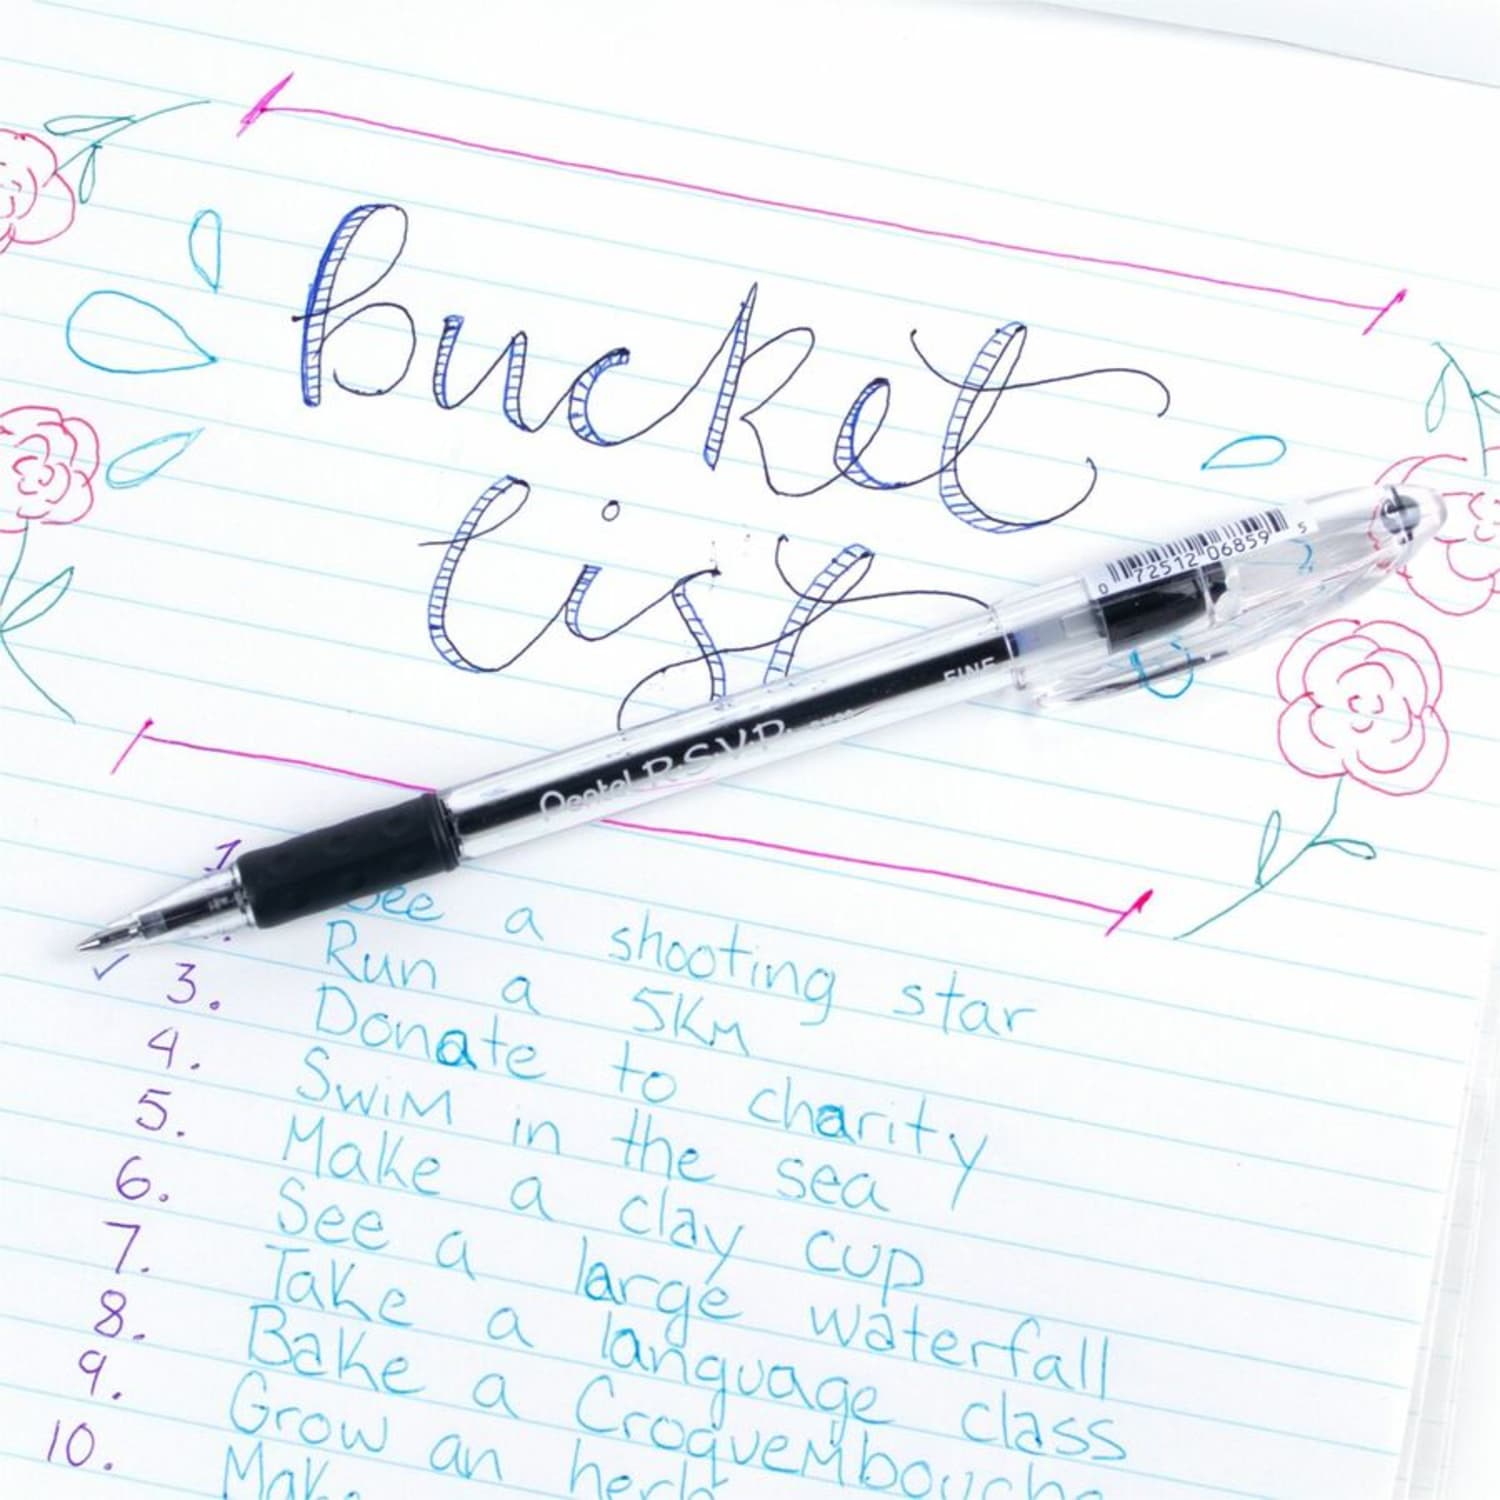 bucket
list
0 72512 06859 5
FINE
Pentel R.S.V.P.
1.
See a shooting star
Run a 5KM
✓ 3. Donate to charity
4. Swim in the sea
5. Make a clay cup
6. See a large waterfall
7. Take a language class
8. Bake a Croquembouche
9. Grow an herb
10. Make